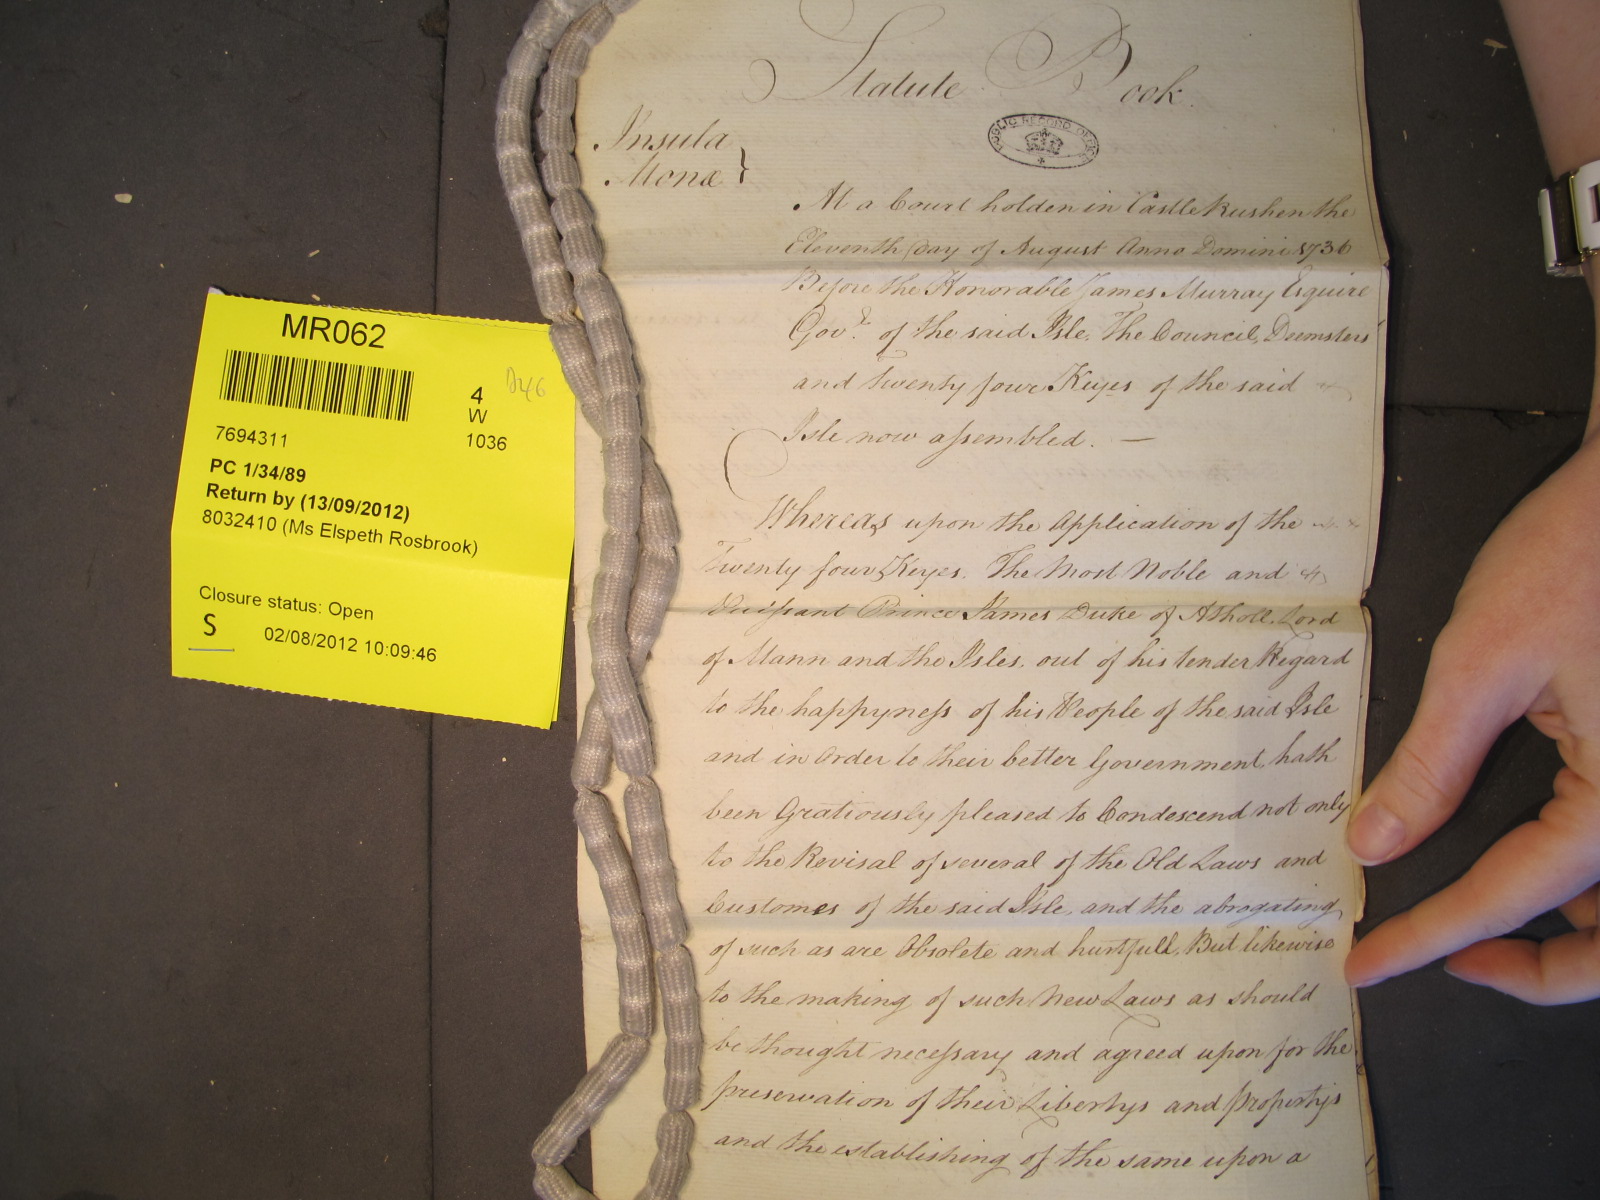 Statute Book
PUBLIC RECORD OFFICE
Insula
Monæ }
At a Court holden in Castle Rushen the
Eleventh Day of August Anno Domini 1736
Before the Honorable James Murray Esquire
Govr. of the said Isle, The Council, Deemsters
and twenty four Keyes of the said
Isle now assembled. —
Whereas upon the Application of the
Twenty four Keyes. The Most Noble and
Puissant Prince James Duke of Atholl, Lord
of Mann and the Isles, out of his tender Regard
to the happyness of his People of the said Isle
and in Order to their better Government, hath
been Gratiously pleased to Condescend not only
to the Revisal of several of the Old Laws and
Customes of the said Isle, and the abrogating
of such as are Obsolete and hurtfull, But likewise
to the making of such New Laws as should
be thought necessary and agreed upon for the
preservation of their Libertys and propertys
and the establishing of the same upon a
MR062
D46
4
W
1036
7694311
PC 1/34/89
Return by (13/09/2012)
8032410 (Ms Elspeth Rosbrook)
Closure status: Open
S
02/08/2012 10:09:46